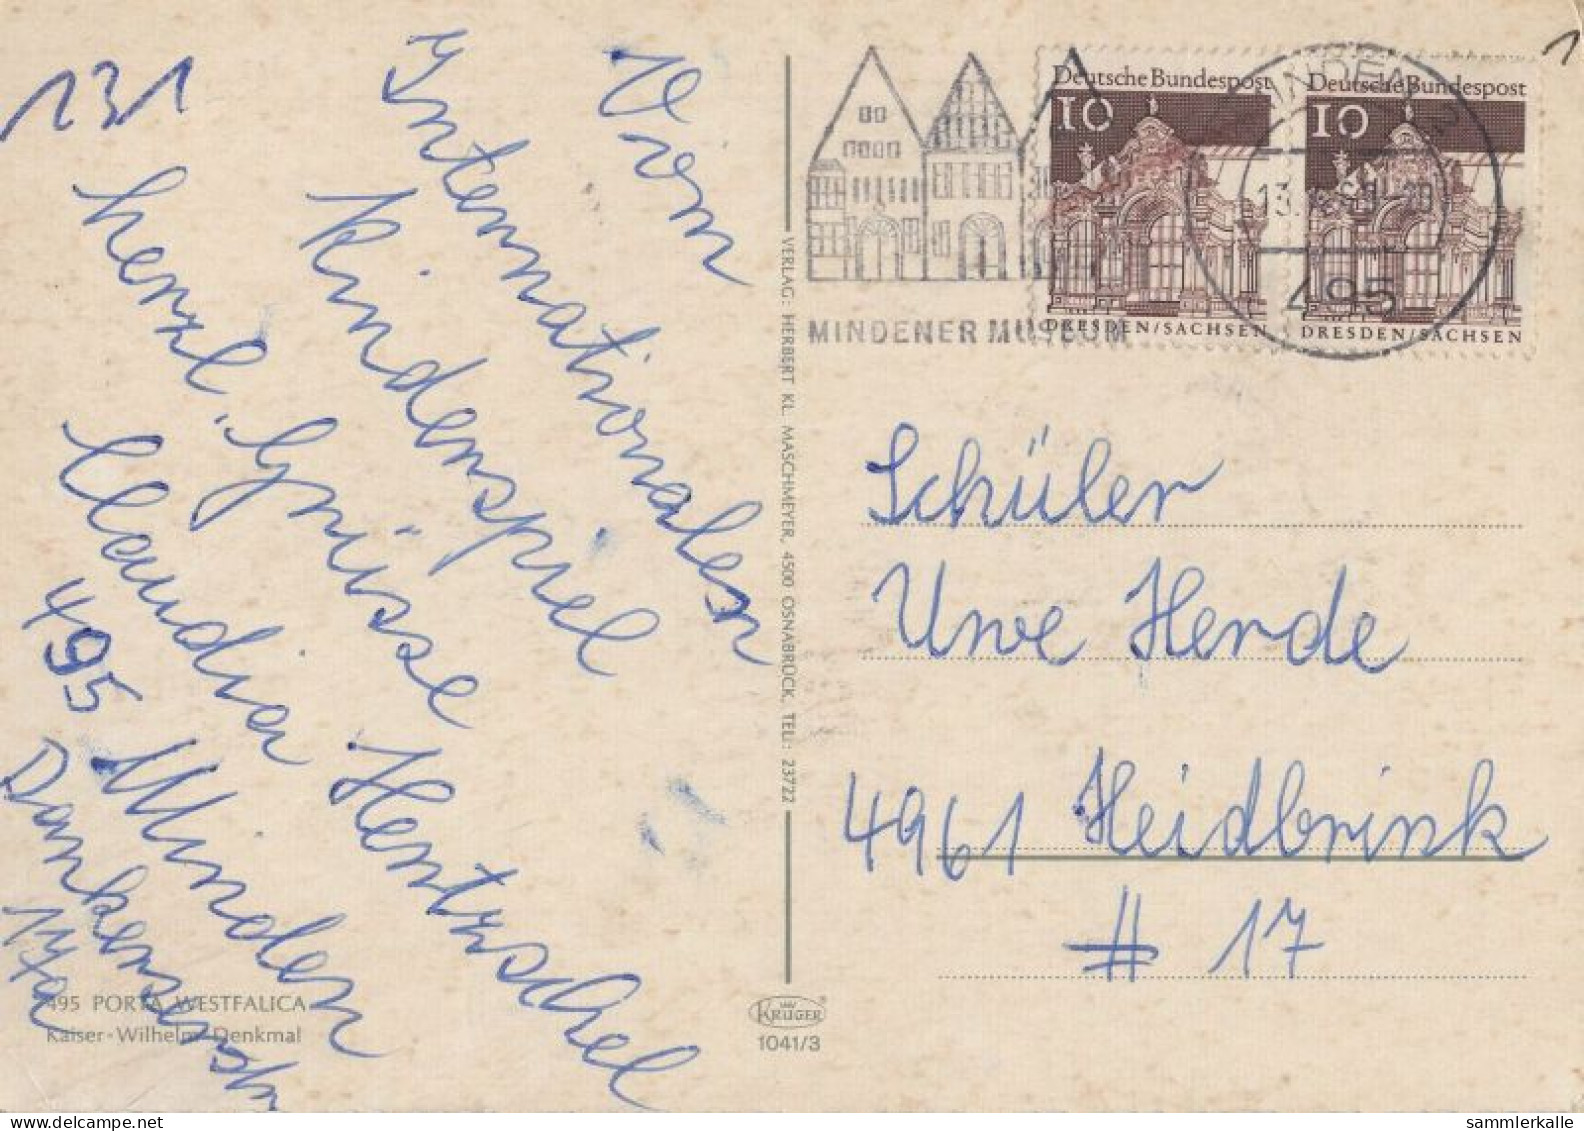 131
Vom
Internationalen
Kinderspiel
herzl. Grüsse
Claudia Hentzschel
495 Minden
Dankerserstr
17a
495 PORTA WESTFALICA
Kaiser-Wilhelm-Denkmal
VERLAG: HERBERT KL. MASCHMEYER, 4500 OSNABRÜCK, TEL.: 23722
KRÜGER
1041/3
MINDENER MUSEUM
Deutsche Bundespost
10
DRESDEN/SACHSEN
Deutsche Bundespost
10
DRESDEN/SACHSEN
MINDEN
495
1
Schüler
Uwe Herde
4961 Heidbrink
# 17
sammlerkalle